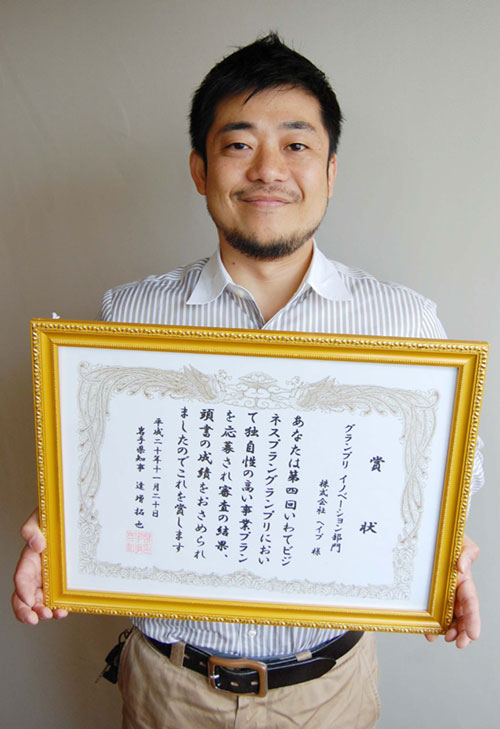 賞状
グランプリ イノベーション部門
株式会社 ヘイプ 様
あなたは第四回いわてビジ
ネスプラングランプリにおい
て独自性の高い事業プラン
を応募され審査の結果、
頭書の成績をおさめられ
ましたのでこれを賞します
平成二十年十一月二十日
岩手県知事 達増拓也